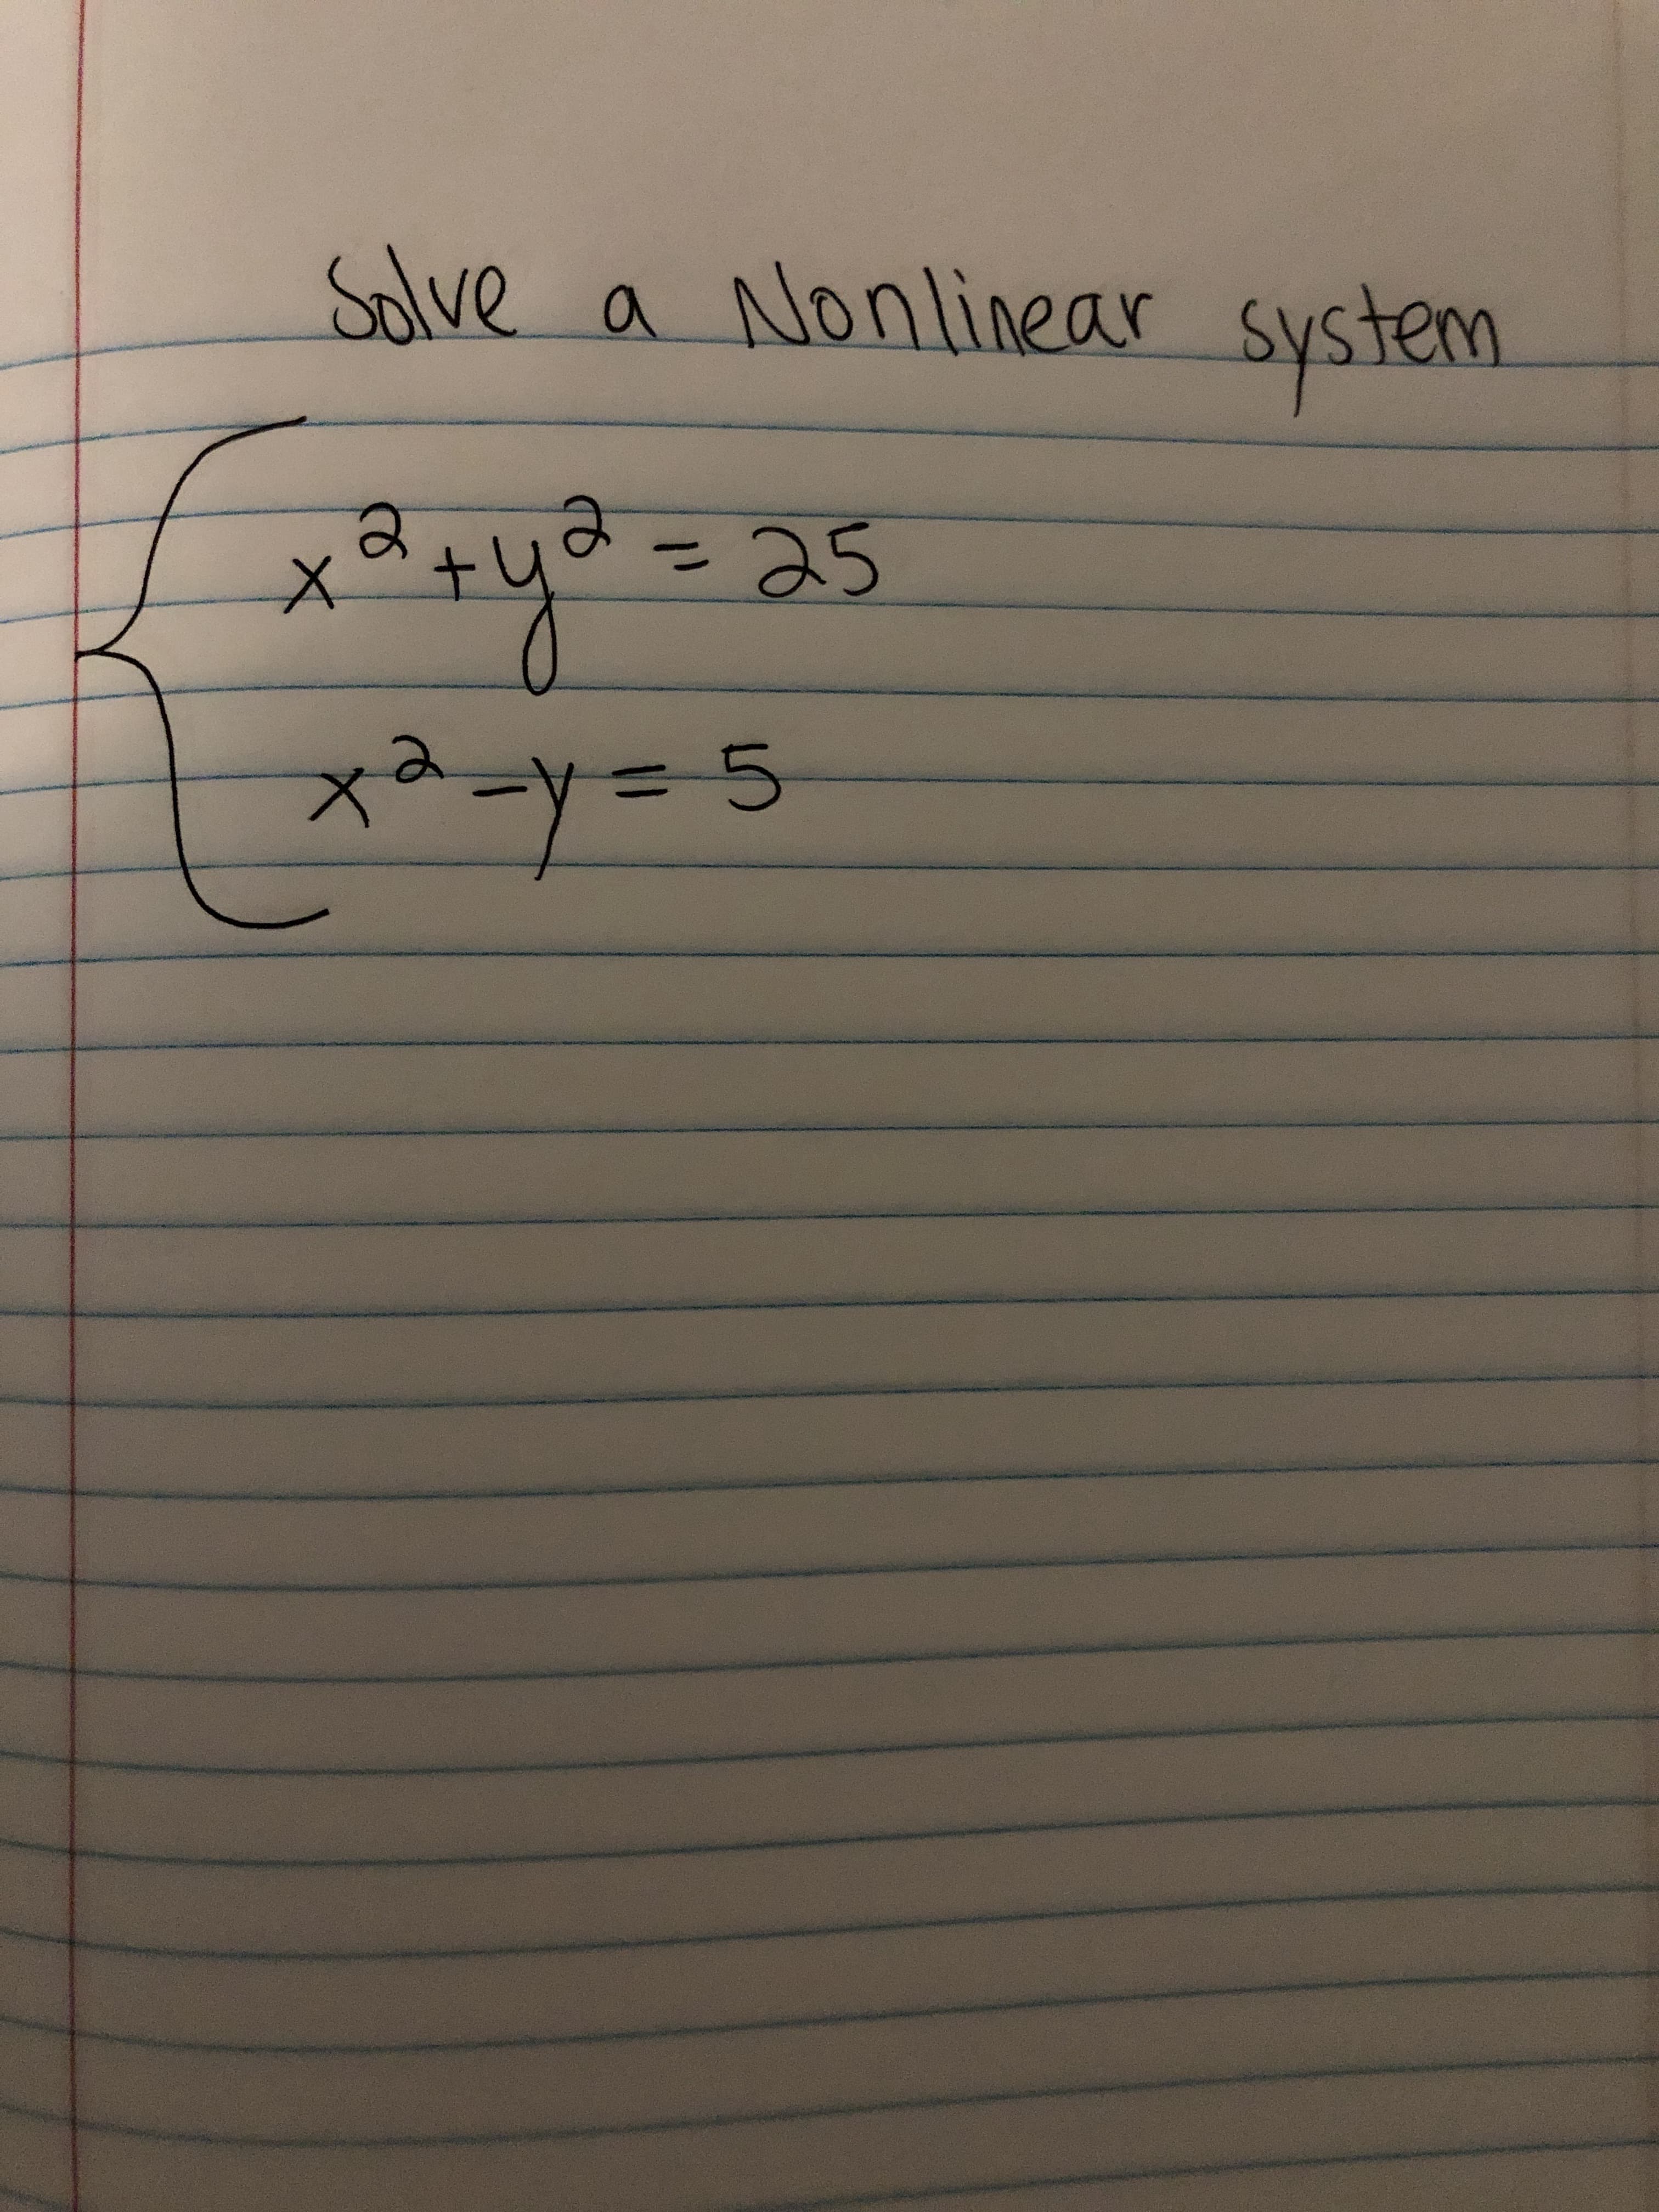 Solve a Nonlinear system
x² + y² = 25
x² - y = 5